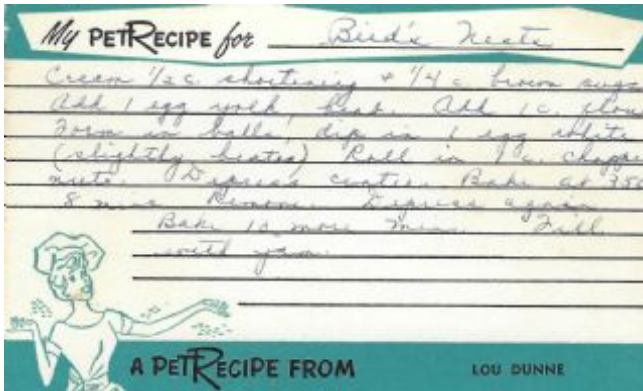 My PET RECIPE for Bird's Nests
Cream 1/2 c. shortening + 1/4 c brown suga
Add 1 egg yolk, beat. Add 1 c.
Form in balls, dip in 1 egg white
(slightly beaten) Roll in 1 c. chopp
nuts. Depress center. Bake at 350
8 min. Remove. Depress again
Bake 10 more min. Fill
with jam.
A PET RECIPE FROM LOU DUNNE